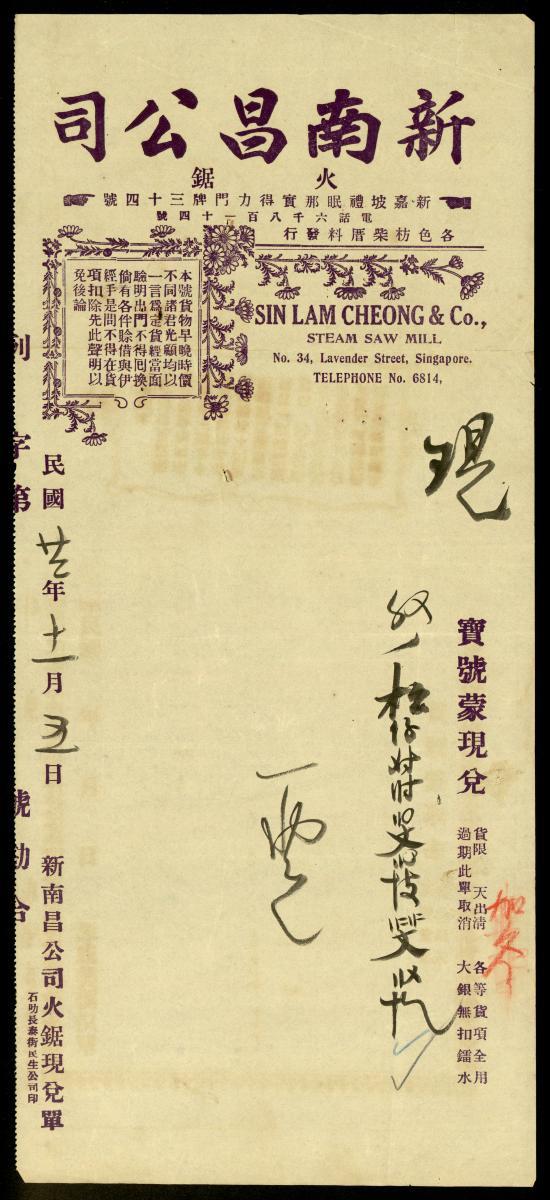 新南昌公司
火鋸
新嘉坡禮眠那實得力門牌三十四號
電話六千八百一十四號
各色枋柴厝料發行
SIN LAM CHEONG & Co.,
STEAM SAW MILL
No. 34, Lavender Street, Singapore.
TELEPHONE No. 6814,
本號貨物早晚時價
不同諸君光顧均以
一言為定貨經當面
驗明出門不得囘換
倘有各件賒借與伊
經手是問不得在貨
項扣除先此聲明以
免後論
現
寶號蒙現兌
貨限 天出清
過期此單取消
各等貨項全用
大銀無扣鐳水
民國廿三年十一月五日
新南昌公司火鋸現兌單
石叻長泰街民生公司印
字第
號勘合